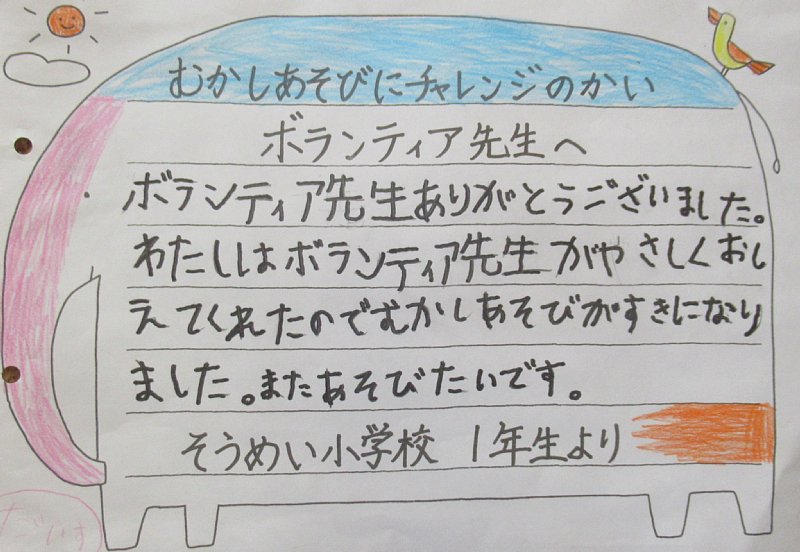 むかしあそびにチャレンジのかい
ボランティア先生へ
ボランティア先生ありがとうございました。
わたしはボランティア先生がやさしくおし
えてくれたのでむかしあそびがすきになり
ました。またあそびたいです。
そうめい小学校 1年生より